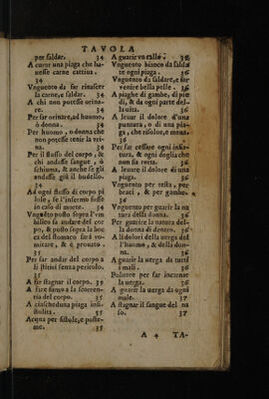 TAVOLA
per saldar. 34
A curar una piaga che ha-
uesse carne cattiua.
34
Vnguento da far rinascer
la carne, e saldar. 34
A chi non potesse orina-
re. 34
Per far orinare, ad huomo,
ò donna. 34
Per huomo, ò donna che
non potesse tenir la vri-
na. 34
Per il flusso del corpo, &
chi andasse sangue, ò
schiuma, & anche se gli
andasse giù il budello.
34
Ad ogni flusso di corpo pi
lole, se l'infermo fusse
in caso di morte. 34
Vnguēto posto sopra l'vm
bilico fa andare del cor
po, & posto sopra la boc
ca del stomaco farà vo-
mitare, & è prouato
35
Per far andar del corpo a
li stitici senza pericolo.
35
A far stagnar il corpo. 35
A fare
ria del corpo. 35
A ciascheduna piaga infi-
stolita. 35
Acqua per fistole, e poste-
me. 35
A guarir vn callo. 36
Vnguento bianco da saldar
te ogni piaga. 36
Vnguento da saldare, e far
venire bella pelle. 36
A piaghe di gambe, di pie
di, & da ogni parte del-
la vita. 36
A leuar il dolore d'una
puntura, o di una pia-
ga, che risolue,
36
Per far cessare ogni
tura, & ogni doglia che
non sia rotta. 36
A leuare il dolore di una
piaga. 36
Vnguento per testa, per
braci, & per gambe.
36
Vnguento per guarir la na
tura della donna. 36
Per guarire la natura del-
la donna di dentro. 36
A li dolori della uerga del
l'huomo, & della don-
na. 36
A guarir la uerga da tutti
i mali. 36
Poluere per far incarnare
la uerga. 36
A guarir la uerga da ogni
male. 37
A stagnar il sangue del na
so. 37
A 4 TA-